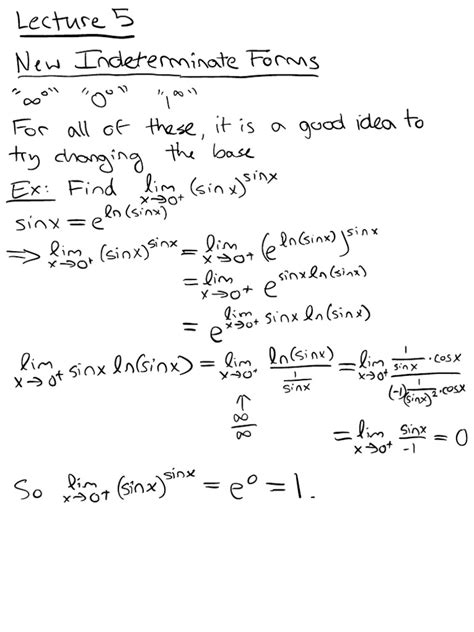 Lecture 5
New Indeterminate Forms
"∞⁰" "0⁰" "1^∞"
For all of these, it is a good idea to
try changing the base
Ex: Find lim_{x→0⁺} (sin x)^{sin x}
sin x = e^{ln(sin x)}
⇒ lim_{x→0⁺} (sin x)^{sin x} = lim_{x→0⁺} (e^{ln(sin x)})^{sin x}
= lim_{x→0⁺} e^{sin x ln(sin x)}
= e^{lim_{x→0⁺} sin x ln(sin x)}
lim_{x→0⁺} sin x ln(sin x) = lim_{x→0⁺} ln(sin x) / (1/sin x) = lim_{x→0⁺} (1/sin x · cos x) / ((-1) 1/(sin x)² · cos x)
↑
∞/∞
= lim_{x→0⁺} sin x / -1 = 0
So lim_{x→0⁺} (sin x)^{sin x} = e⁰ = 1.